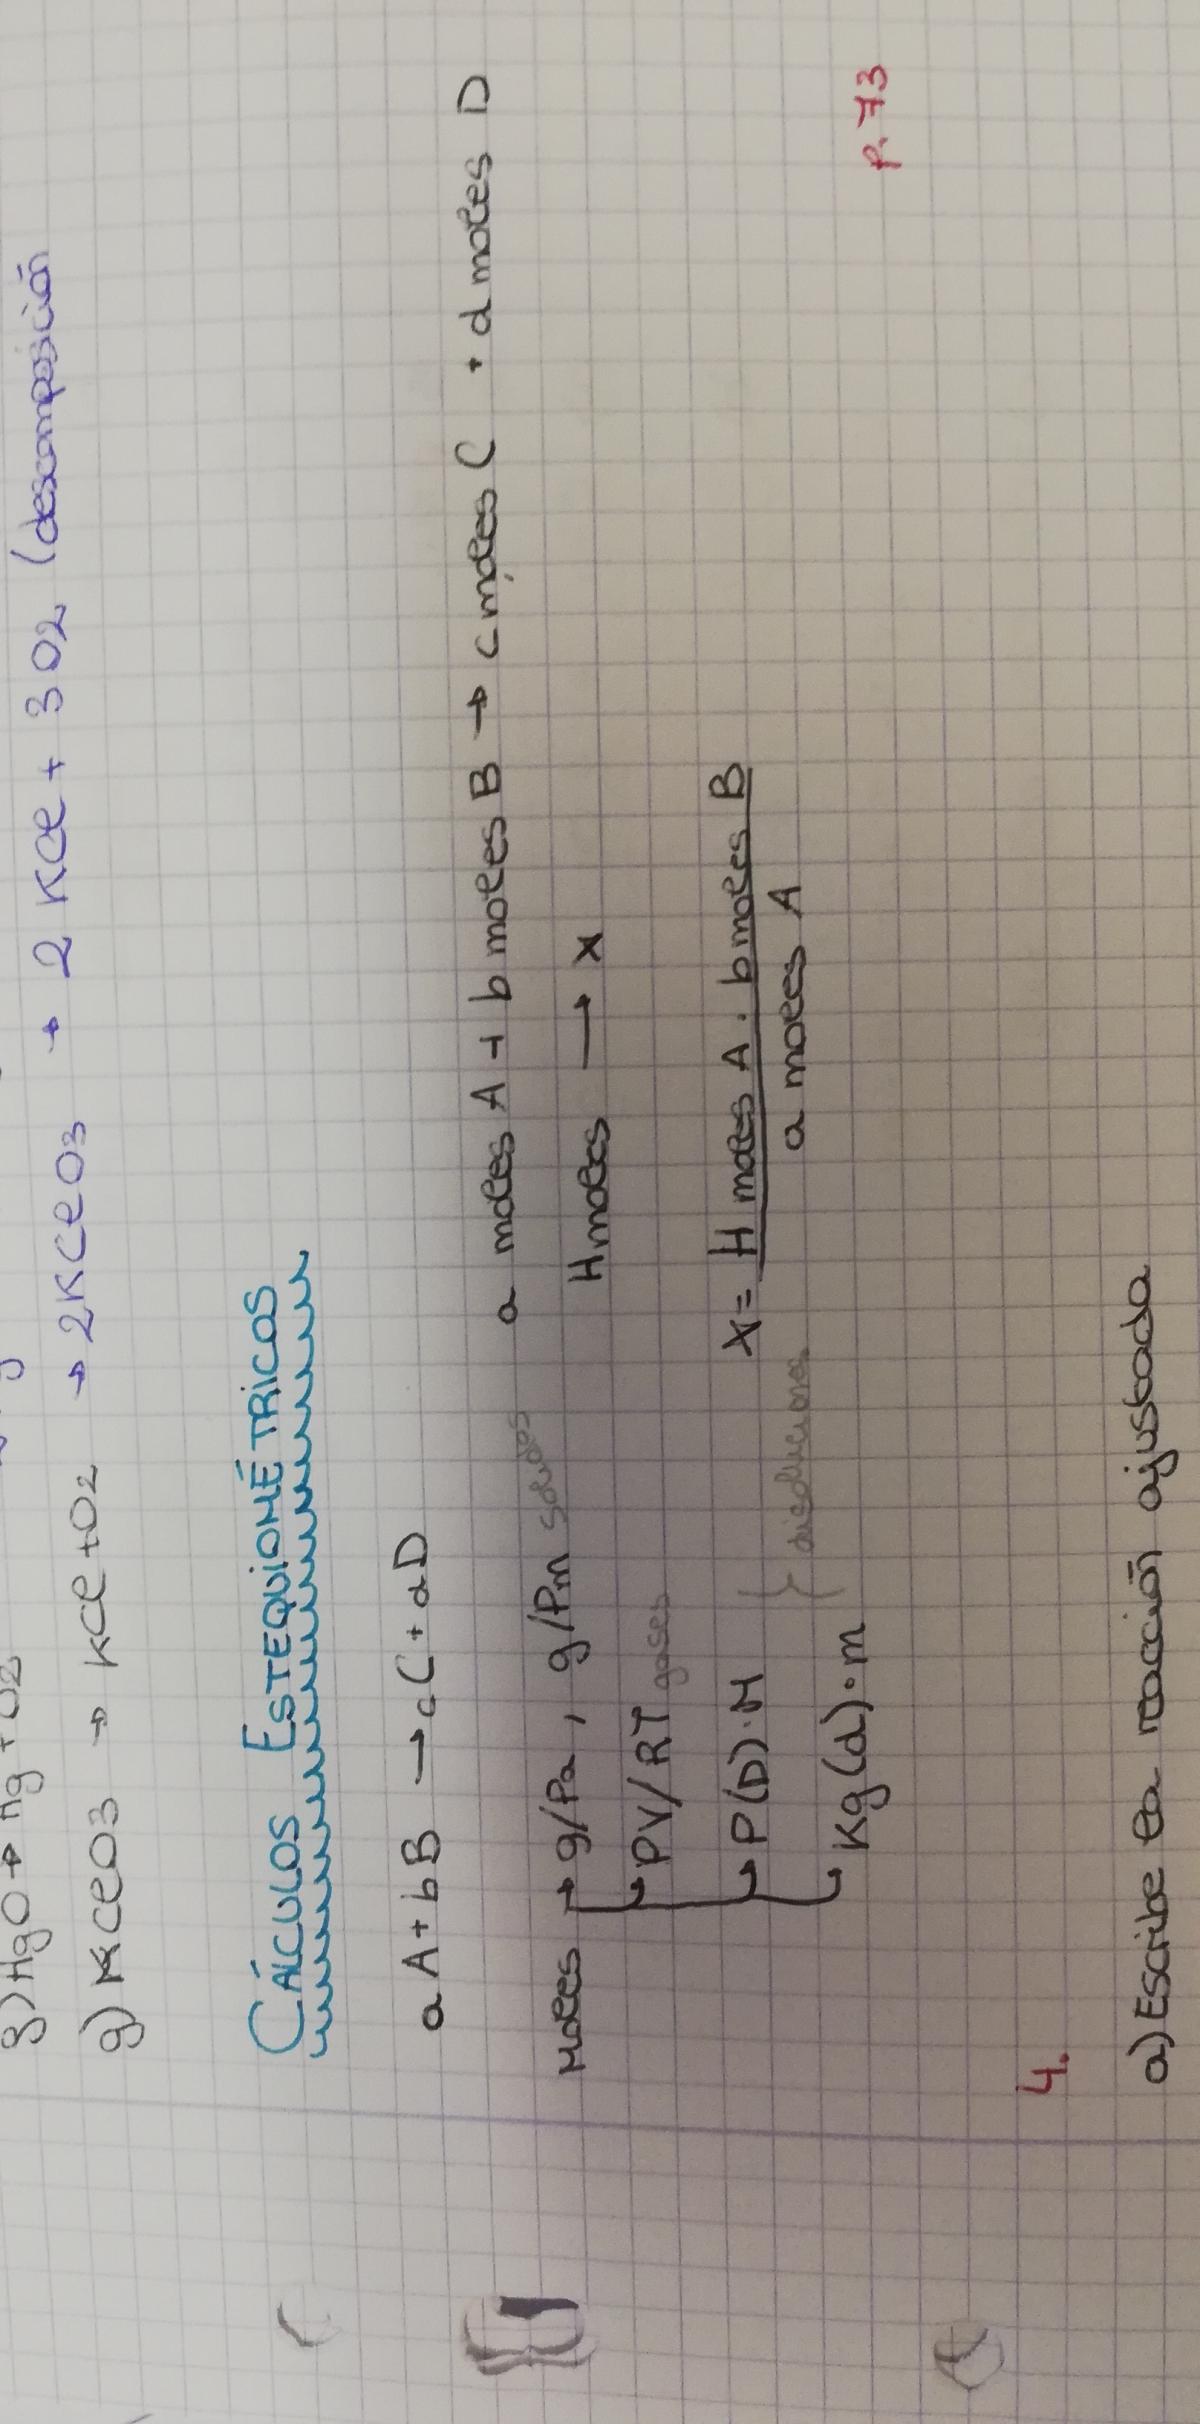 g) HgO → Hg + O2
g) KClO3 → KCl + O2 → 2KClO3 → 2 KCl + 3 O2 (descomposición
CÁLCULOS ESTEQUIOMÉTRICOS
a A + b B → cC + dD
a moles A + b moles B → c moles C + d moles D
Moles → g/Pa, g/Pm solidos
H moles → x
PV/RT gases
x = H moles A · b moles B
a moles A
P(D)·M
Kg(d)·m } disoluciones
p. 73
4.
a) Escribe la reacción ajustada